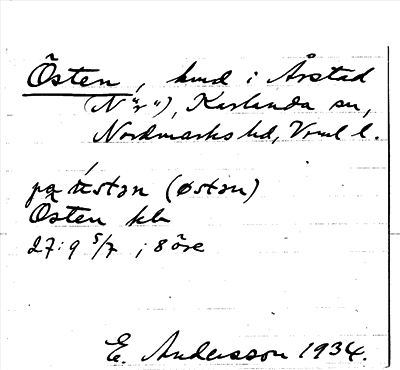 Östen, hmd i Årstad
(N "2"), Karlanda sn,
Nordmarks hd, Vrml l.
på ɯstən (østən)
Östen kb
27:9 5/7 i 8 öre
E. Andersson 1934.